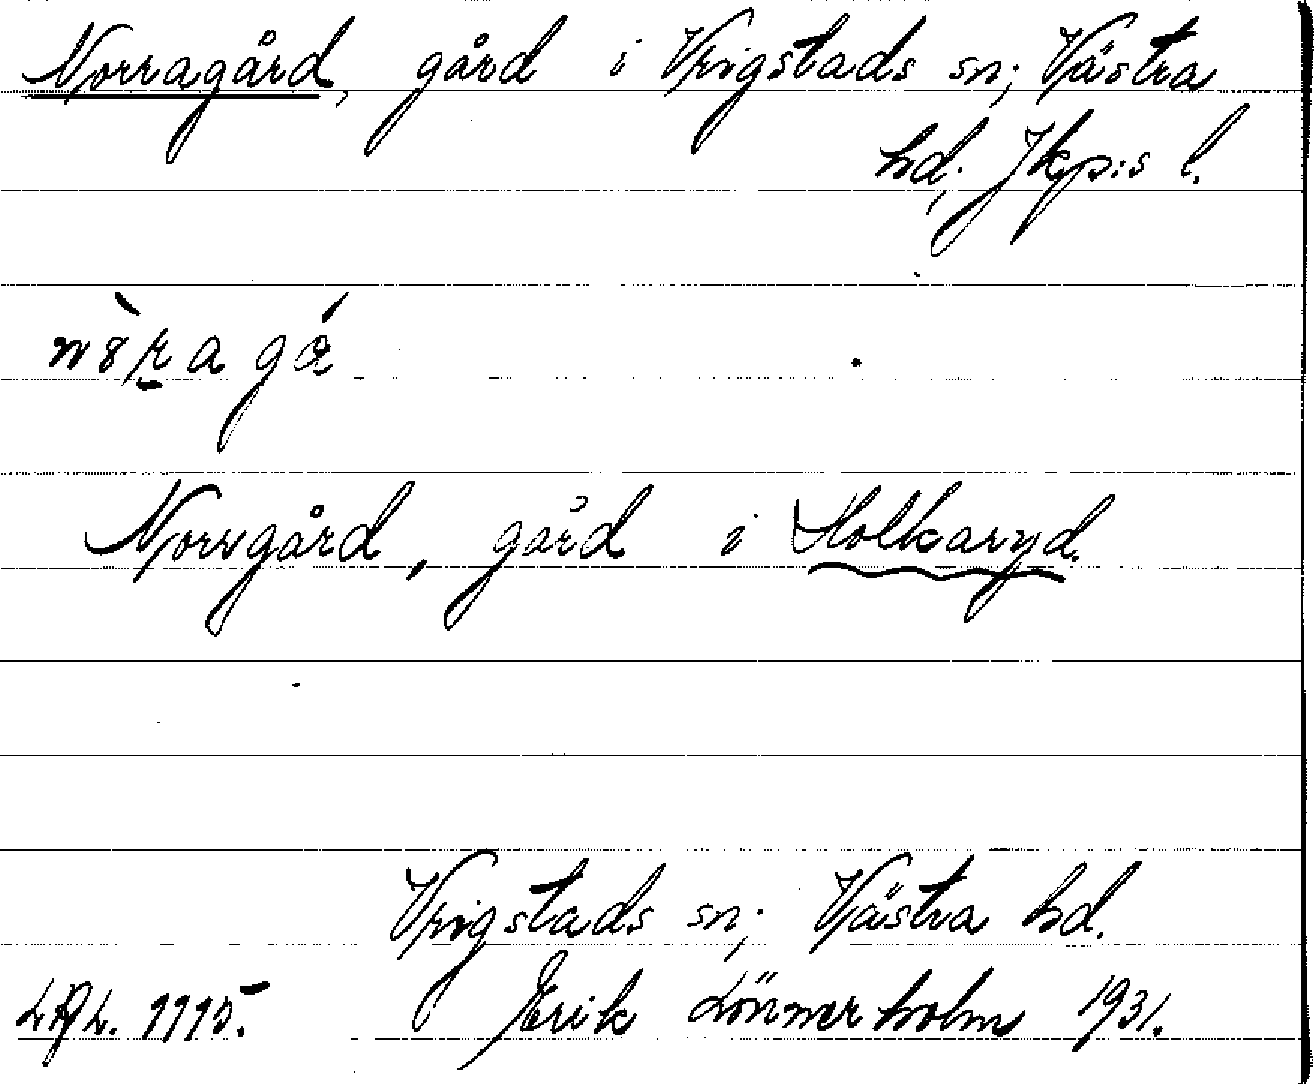 Norragård, gård i Vrigstads sn; Västra
hd; Jkp:s l.
Norrgård, gård i Holkaryd.
Vrigstads sn; Västra hd.
Erik Lönnerholm 1931.